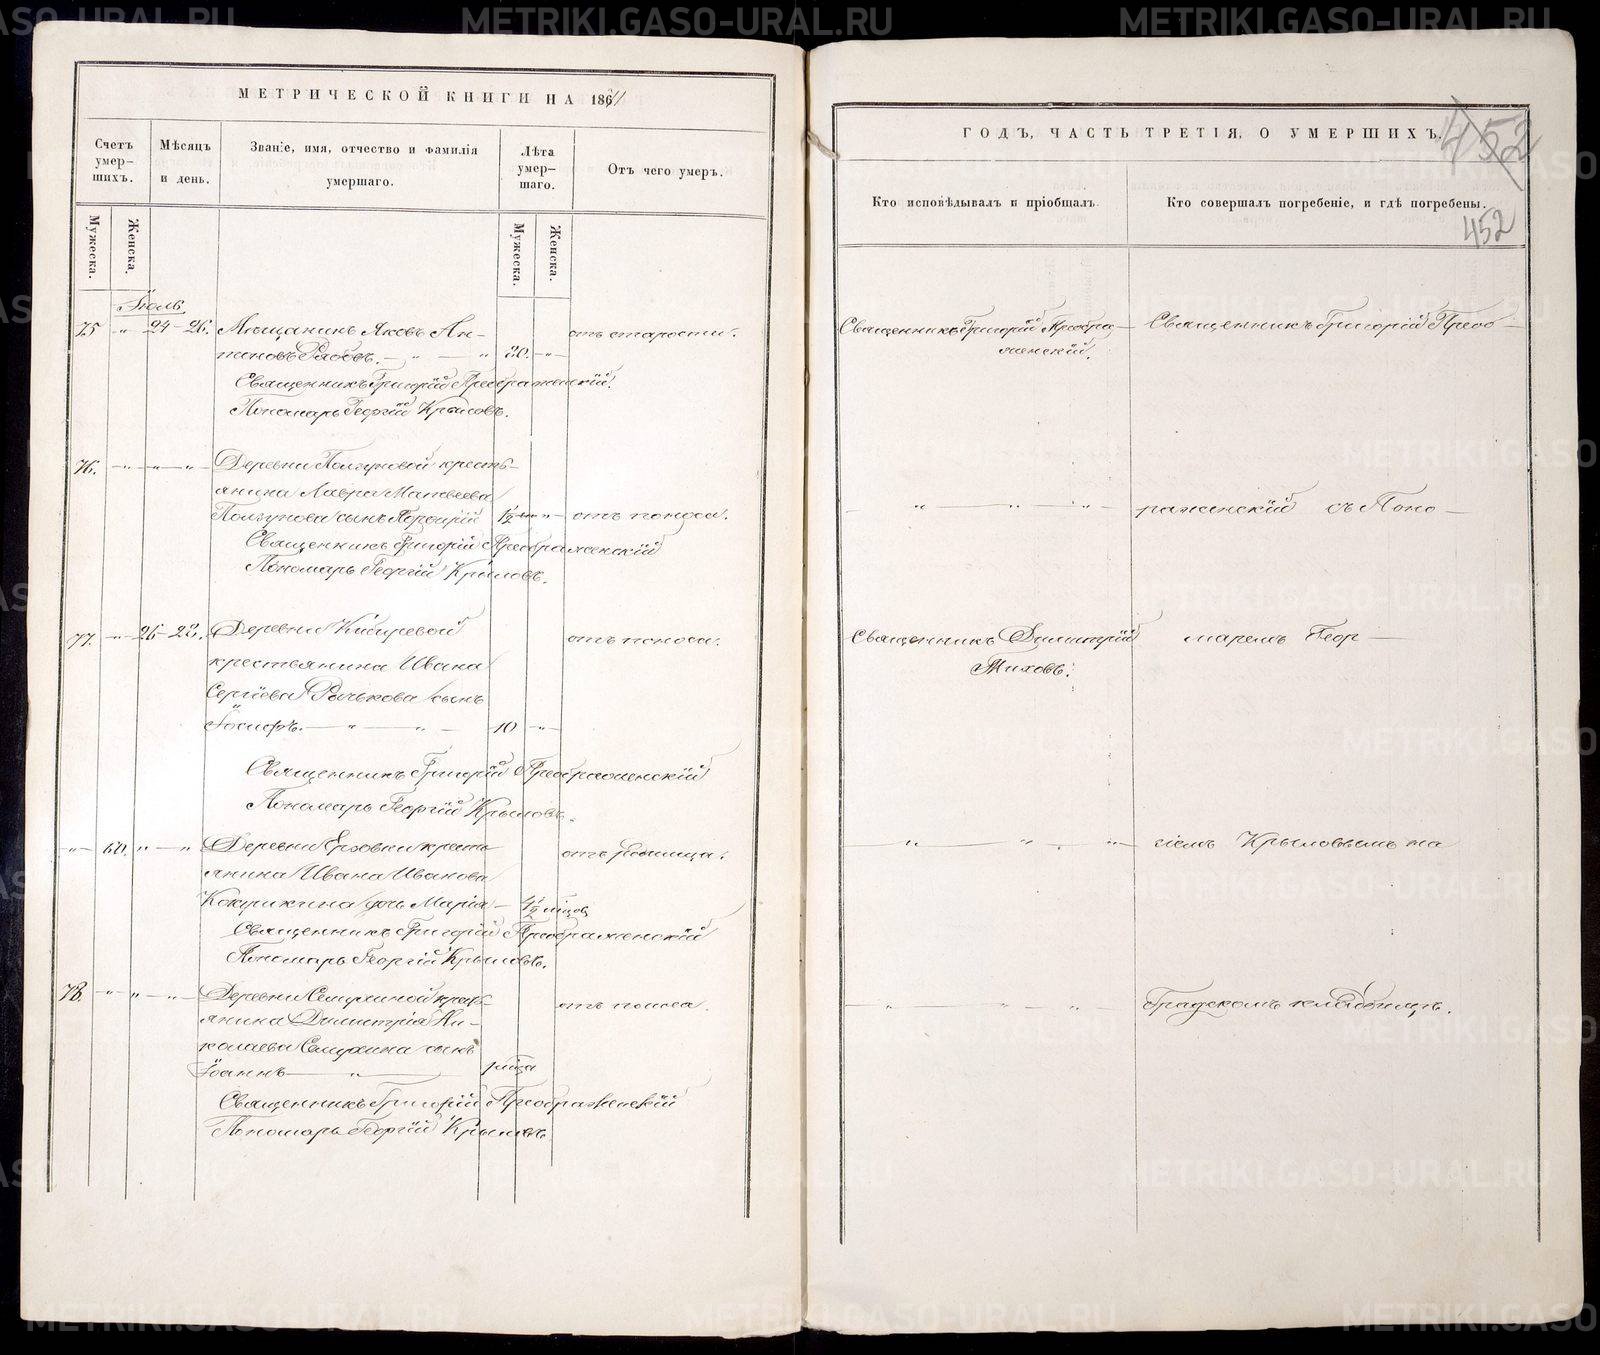 МЕТРИЧЕСКОЙ КНИГИ НА 1861
Счетъ умер-шихъ.
Мѣсяцъ и день.
Званіе, имя, отчество и фамилія умершаго.
Лѣта умер-шаго.
Отъ чего умеръ.
Мужеска.
Женска.
Мужеска.
Женска.
Іюль
75 „ 24-26. Мѣщанинъ Яковъ Ан-
типовъ Рябовъ. — „ — „ 80. -„- отъ старости.
Священникъ Григорій Преображенскій.
Пономарь Георгій Крыловъ.
76. -„- „ - „ Деревни Ползуновой кресть-
янина Лавра Матвеева
Ползунова сынъ 1½ „ отъ поноса.
Священникъ Григорій Преображенскій
Пономарь Георгій Крыловъ.
77. -„- 26-28. Деревни Кибиревой отъ поноса.
крестьянина Ивана
Сергіева Рачькова сынъ
Іосифъ. — „ — „ — 10 -„-
Священникъ Григорій Преображенскій
Пономарь Георгій Крыловъ.
-„- 60. „ - „ Деревни кресть- отъ родимца.
янина Ивана Иванова
дочь Марія — 4½ мѣцовъ
Священникъ Григорій Преображенскій
Пономарь Георгій Крыловъ.
78. -„- „ - „ Деревни крест- отъ поноса.
янина Димитрія Ни-
колаева сынъ
Іоаннъ — „ —
Священникъ Григорій Преображенскій
Пономарь Георгій Крыловъ
ГОДЪ, ЧАСТЬ ТРЕТІЯ, О УМЕРШИХЪ.
452
Кто исповѣдывалъ и пріобщалъ.
Кто совершалъ погребеніе, и гдѣ погребены.
452
Священникъ Григорій Преобра- Священникъ Григорій Преоб-
женскій.
„ „ „ раженскій съ Поно-
Священникъ Димитрій маремъ Геор-
Тиховъ.
„ „ „ гіемъ Крыловымъ на
„ „ „ Градскомъ кладбищѣ.
METRIKI.GASO-URAL.RU